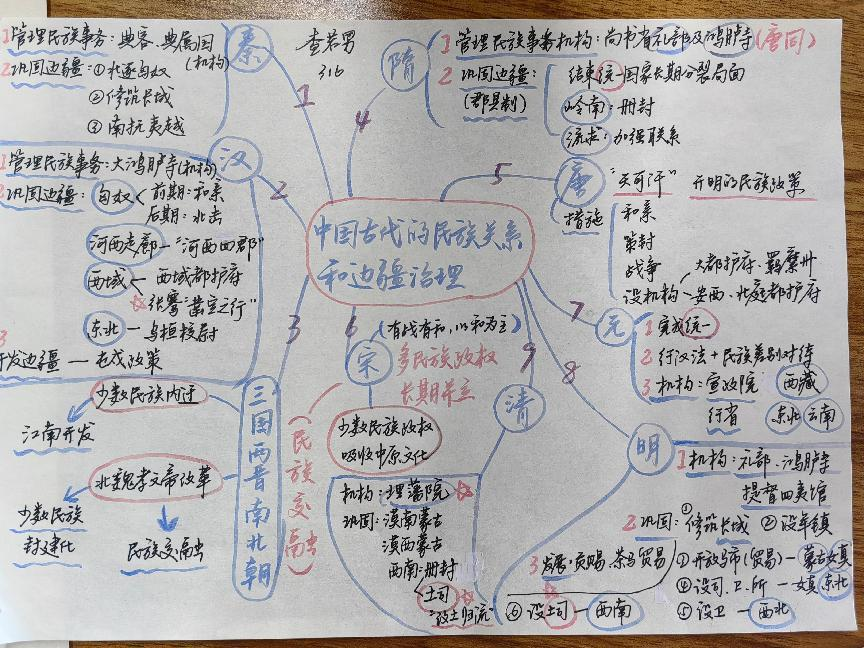 中国古代的民族关系
和边疆治理
查若男
316
1
秦
1管理民族事务：典客、典属国
(机构)
2巩固边疆：①北逐匈奴
②修筑长城
③南抗夷越
2
汉
1管理民族事务：大鸿胪寺(机构)
2巩固边疆：匈奴
前期：和亲
后期：北击
河西走廊—"河西四郡"
西域—西域都护府
张骞"凿空之行"
东北—乌桓校尉
3
开发边疆—屯戍政策
3
三国两晋南北朝
(民族交融)
少数民族内迁
江南开发
北魏孝文帝改革
少数民族
封建化
民族交融
4
隋
1管理民族事务机构：尚书省礼部及鸿胪寺(唐同)
2巩固边疆：
(郡县制)
结束统一国家长期分裂局面
岭南：册封
流求：加强联系
5
唐
"天可汗" 开明的民族政策
措施
和亲
册封
战争
设机构
大都护府、羁縻州
安西、北庭都护府
6
宋
(有战有和，以和为主)
多民族政权
长期并立
少数民族政权
吸收中原文化
7
元
1完成统一
2行汉法+民族差别对待
3机构：宣政院 西藏
行省 东北 云南
8
明
1机构：礼部、鸿胪寺
提督四夷馆
2巩固：①修筑长城 ②设军镇
③开放马市(贸易)—蒙古女真
④设司、卫、所—女真东北
⑤设卫—西北
⑥设土司—西南
3发展：贡赐、茶马贸易
9
清
机构：理藩院
巩固：漠南蒙古
漠西蒙古
西南：册封
土司
"改土归流"